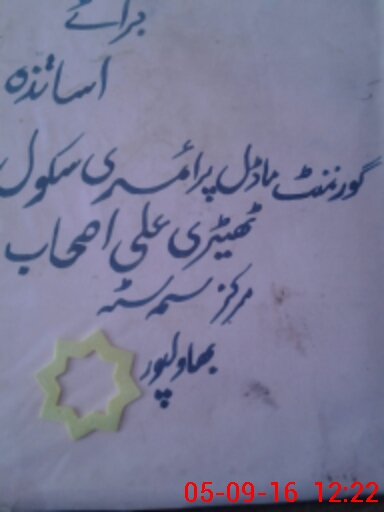 برائے
اساتذہ
گورنمنٹ ماڈل پرائمری سکول
ٹھیڑی علی اصحاب
مرکز سمہ سٹہ
بھاولپور
05-09-16 12:22